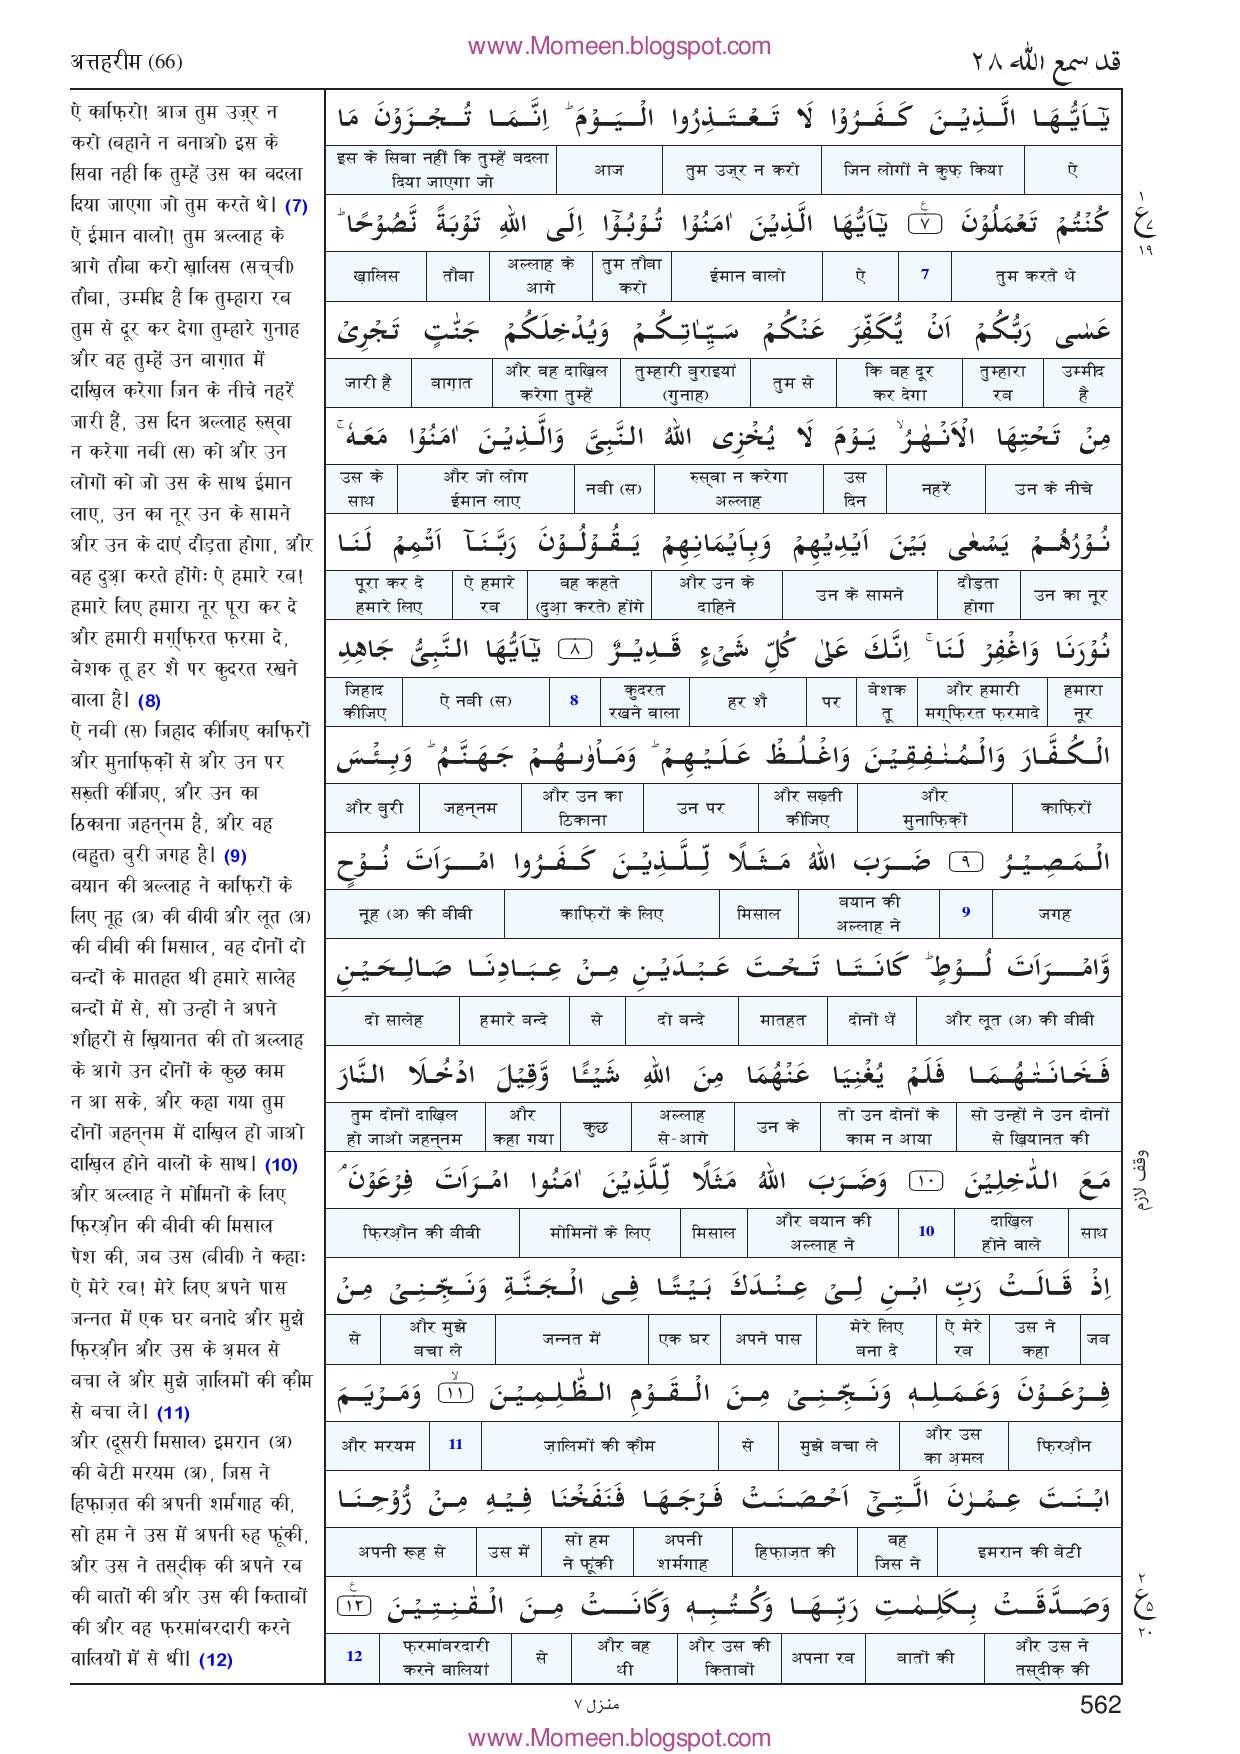 www.Momeen.blogspot.com
अत्तहरीम (66)
قد سمع الله ٢٨
ऐ काफ़िरो! आज तुम उज़्र न
करो (बहाने न बनाओ) इस के
सिवा नहीं कि तुम्हें उस का बदला
दिया जाएगा जो तुम करते थे। (7)
ऐ ईमान वालो! तुम अल्लाह के
आगे तौबा करो ख़ालिस (सच्ची)
तौबा, उम्मीद है कि तुम्हारा रब
तुम से दूर कर देगा तुम्हारे गुनाह
और वह तुम्हें उन बाग़ात में
दाख़िल करेगा जिन के नीचे नहरें
जारी हैं, उस दिन अल्लाह रुस्वा
न करेगा नबी (स) को और उन
लोगों को जो उस के साथ ईमान
लाए, उन का नूर उन के सामने
और उन के दाएं दौड़ता होगा, और
वह दुआ़ करते होंगेः ऐ हमारे रब!
हमारे लिए हमारा नूर पूरा कर दे
और हमारी मग़्फ़िरत फ़रमा दे,
बेशक तू हर शै पर कुदरत रखने
वाला है। (8)
ऐ नबी (स) जिहाद कीजिए काफ़िरों
और मुनाफ़िक़ों से और उन पर
सख़्ती कीजिए, और उन का
ठिकाना जहन्नम है, और वह
(बहुत) बुरी जगह है। (9)
बयान की अल्लाह ने काफ़िरों के
लिए नूह (अ) की बीवी और लूत (अ)
की बीवी की मिसाल, वह दोनों दो
बन्दों के मातहत थी हमारे सालेह
बन्दों में से, सो उन्हों ने अपने
शौहरों से ख़ियानत की तो अल्लाह
के आगे उन दोनों के कुछ काम
न आ सके, और कहा गया तुम
दोनों जहन्नम में दाख़िल हो जाओ
दाख़िल होने वालों के साथ। (10)
और अल्लाह ने मोमिनों के लिए
फ़िरऔ़न की बीवी की मिसाल
पेश की, जब उस (बीवी) ने कहाः
ऐ मेरे रब! मेरे लिए अपने पास
जन्नत में एक घर बनादे और मुझे
फ़िरऔ़न और उस के अ़मल से
बचा ले और मुझे ज़ालिमों की क़ौम
से बचा ले। (11)
और (दूसरी मिसाल) इमरान (अ)
की बेटी मरयम (अ), जिस ने
हिफ़ाज़त की अपनी शर्मगाह की,
सो हम ने उस में अपनी रुह फूंकी,
और उस ने तस्दीक़ की अपने रब
की बातों की और उस की किताबों
की और वह फ़रमांबरदारी करने
वालियों में से थी। (12)
يٰٓاَيُّهَا الَّذِيْنَ كَفَرُوْا لَا تَعْتَذِرُوا الْيَوْمَ ؕ اِنَّمَا تُجْزَوْنَ مَا
ऐ | जिन लोगों ने कुफ़्र किया | तुम उज़्र न करो | आज | इस के सिवा नहीं कि तुम्हें बदला दिया जाएगा जो
كُنْتُمْ تَعْمَلُوْنَ ۧ ٧ يٰٓاَيُّهَا الَّذِيْنَ اٰمَنُوْا تُوْبُوْٓا اِلَى اللّٰهِ تَوْبَةً نَّصُوْحًا ؕ
तुम करते थे | 7 | ऐ | ईमान वालो | तुम तौबा करो | अल्लाह के आगे | तौबा | ख़ालिस
عَسٰى رَبُّكُمْ اَنْ يُّكَفِّرَ عَنْكُمْ سَيِّاٰتِكُمْ وَيُدْخِلَكُمْ جَنّٰتٍ تَجْرِيْ
उम्मीद है | तुम्हारा रब | कि वह दूर कर देगा | तुम से | तुम्हारी बुराइयां (गुनाह) | और वह दाख़िल करेगा तुम्हें | बाग़ात | जारी हैं
مِنْ تَحْتِهَا الْاَنْهٰرُ ۙ يَوْمَ لَا يُخْزِى اللّٰهُ النَّبِيَّ وَالَّذِيْنَ اٰمَنُوْا مَعَهٗ ۚ
उन के नीचे | नहरें | उस दिन | रुस्वा न करेगा अल्लाह | नबी (स) | और जो लोग ईमान लाए | उस के साथ
نُوْرُهُمْ يَسْعٰى بَيْنَ اَيْدِيْهِمْ وَبِاَيْمَانِهِمْ يَقُوْلُوْنَ رَبَّنَآ اَتْمِمْ لَنَا
उन का नूर | दौड़ता होगा | उन के सामने | और उन के दाहिने | वह कहते (दुआ़ करते) होंगे | ऐ हमारे रब | पूरा कर दे हमारे लिए
نُوْرَنَا وَاغْفِرْ لَنَا ۚ اِنَّكَ عَلٰى كُلِّ شَيْءٍ قَدِيْرٌ ٨ يٰٓاَيُّهَا النَّبِيُّ جَاهِدِ
हमारा नूर | और हमारी मग़्फ़िरत फ़रमादे | बेशक तू | पर | हर शै | कुदरत रखने वाला | 8 | ऐ नबी (स) | जिहाद कीजिए
الْكُفَّارَ وَالْمُنٰفِقِيْنَ وَاغْلُظْ عَلَيْهِمْ ؕ وَمَاْوٰىهُمْ جَهَنَّمُ ؕ وَبِئْسَ
काफ़िरों | और मुनाफ़िक़ों | और सख़्ती कीजिए | उन पर | और उन का ठिकाना | जहन्नम | और बुरी
الْمَصِيْرُ ٩ ضَرَبَ اللّٰهُ مَثَلًا لِّلَّذِيْنَ كَفَرُوا امْرَاَتَ نُوْحٍ
जगह | 9 | बयान की अल्लाह ने | मिसाल | काफ़िरों के लिए | नूह (अ) की बीवी
وَّامْرَاَتَ لُوْطٍ ؕ كَانَتَا تَحْتَ عَبْدَيْنِ مِنْ عِبَادِنَا صَالِحَيْنِ
और लूत (अ) की बीवी | दोनों थें | मातहत | दो बन्दे | से | हमारे बन्दे | दो सालेह
فَخَانَتٰهُمَا فَلَمْ يُغْنِيَا عَنْهُمَا مِنَ اللّٰهِ شَيْـًٔا وَّقِيْلَ ادْخُلَا النَّارَ
सो उन्हों ने उन दोनों से ख़ियानत की | तो उन दोनों के काम न आया | उन के | अल्लाह से-आगे | कुछ | और कहा गया | तुम दोनों दाख़िल हो जाओ जहन्नम
مَعَ الدّٰخِلِيْنَ ١٠ وَضَرَبَ اللّٰهُ مَثَلًا لِّلَّذِيْنَ اٰمَنُوا امْرَاَتَ فِرْعَوْنَ ۘ
साथ | दाख़िल होने वाले | 10 | और बयान की अल्लाह ने | मिसाल | मोमिनों के लिए | फ़िरऔ़न की बीवी
اِذْ قَالَتْ رَبِّ ابْنِ لِيْ عِنْدَكَ بَيْتًا فِي الْجَنَّةِ وَنَجِّنِيْ مِنْ
जब | उस ने कहा | ऐ मेरे रब | मेरे लिए बना दे | अपने पास | एक घर | जन्नत में | और मुझे बचा ले | से
فِرْعَوْنَ وَعَمَلِهٖ وَنَجِّنِيْ مِنَ الْقَوْمِ الظّٰلِمِيْنَ ۙ ١١ وَمَرْيَمَ
फ़िरऔ़न | और उस का अ़मल | मुझे बचा ले | से | ज़ालिमों की क़ौम | 11 | और मरयम
ابْنَتَ عِمْرٰنَ الَّتِيْٓ اَحْصَنَتْ فَرْجَهَا فَنَفَخْنَا فِيْهِ مِنْ رُّوْحِنَا
इमरान की बेटी | वह जिस ने | हिफ़ाज़त की | अपनी शर्मगाह | सो हम ने फूंकी | उस में | अपनी रूह से
وَصَدَّقَتْ بِكَلِمٰتِ رَبِّهَا وَكُتُبِهٖ وَكَانَتْ مِنَ الْقٰنِتِيْنَ ۧ ١٢
और उस ने तस्दीक़ की | बातों की | अपना रब | और उस की किताबों | और वह थी | से | फ़रमांबरदारी करने वालियां | 12
١
ع ٧
١٩
وقف لازم
٢
ع ٥
٢٠
منزل ٧
562
www.Momeen.blogspot.com